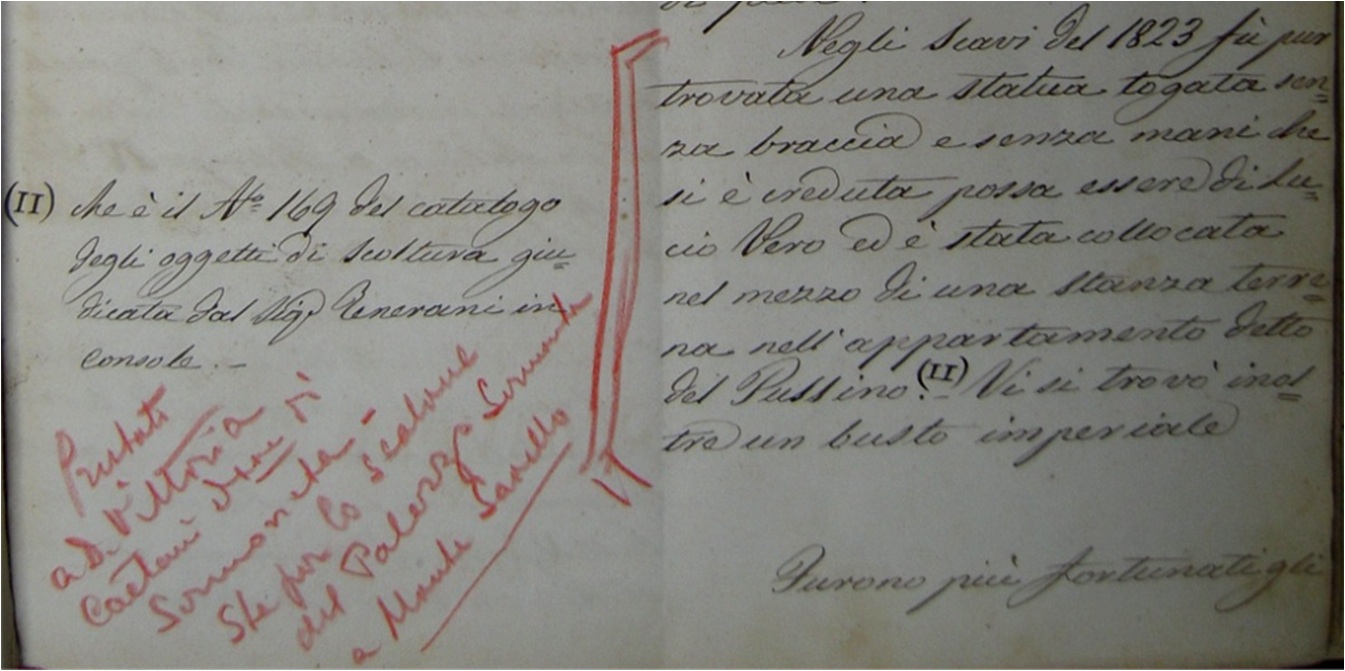 di
Negli Scavi del 1823 fù pur
trovata una statua togata sen=
za braccia e senza mani che
si è creduta possa essere di Lu=
cio Vero ed è stata collocata
nel mezzo di una stanza terre=
na nell'appartamento detto
del Pussino.(II) Vi si trovò inol=
tre un busto imperiale
Furono più fortunati gli
(II) che è il No 169 del catalogo
degli oggetti di scoltura giu=
dicata dal Sigr Tenerani in
console.-
Prestato
a D. Vittoria
Caetani di
Sermoneta -
Sta per lo scalone
del Palazzo Sermoneta
a Monte Savello